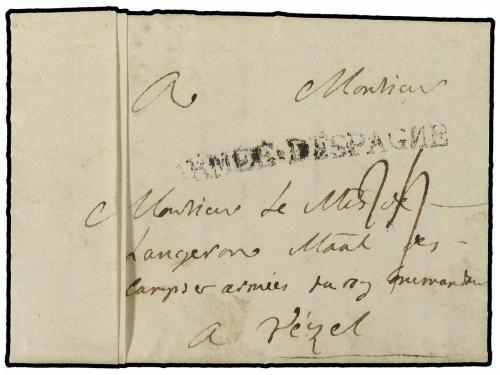 A Monsieur
ARMÉE·DESPAGNE
Monsieur Le Mis de
Langeron Maal des
camps et armées du roy Commandant
a Vézel